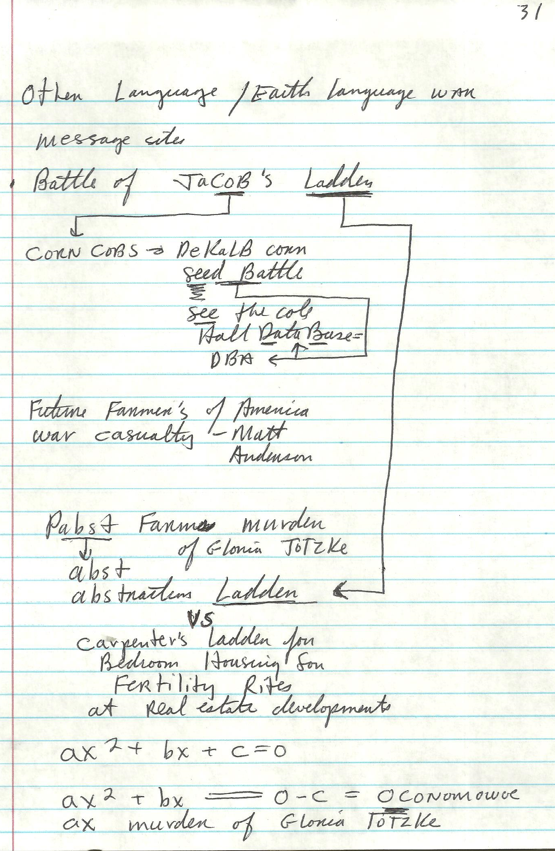 31
Other Language / Earth Language war
message sites
. Battle of JaCOB's Ladder
CORN COBS → DeKALB corn
seed Battle
see the cob
Hall Data Base=
DBA
Future Farmer's of America
war casualty - Matt
Anderson
Pabst Farms murder
of Gloria ToTZKe
abst
abstraction Ladder
VS
Carpenter's Ladder for
Bedroom Housing for
FERTILITY Rites
at Real estate developments
ax² + bx + c = 0
ax² + bx = 0-C = OCONOMOWOC
ax murder of Gloria ToTZKe